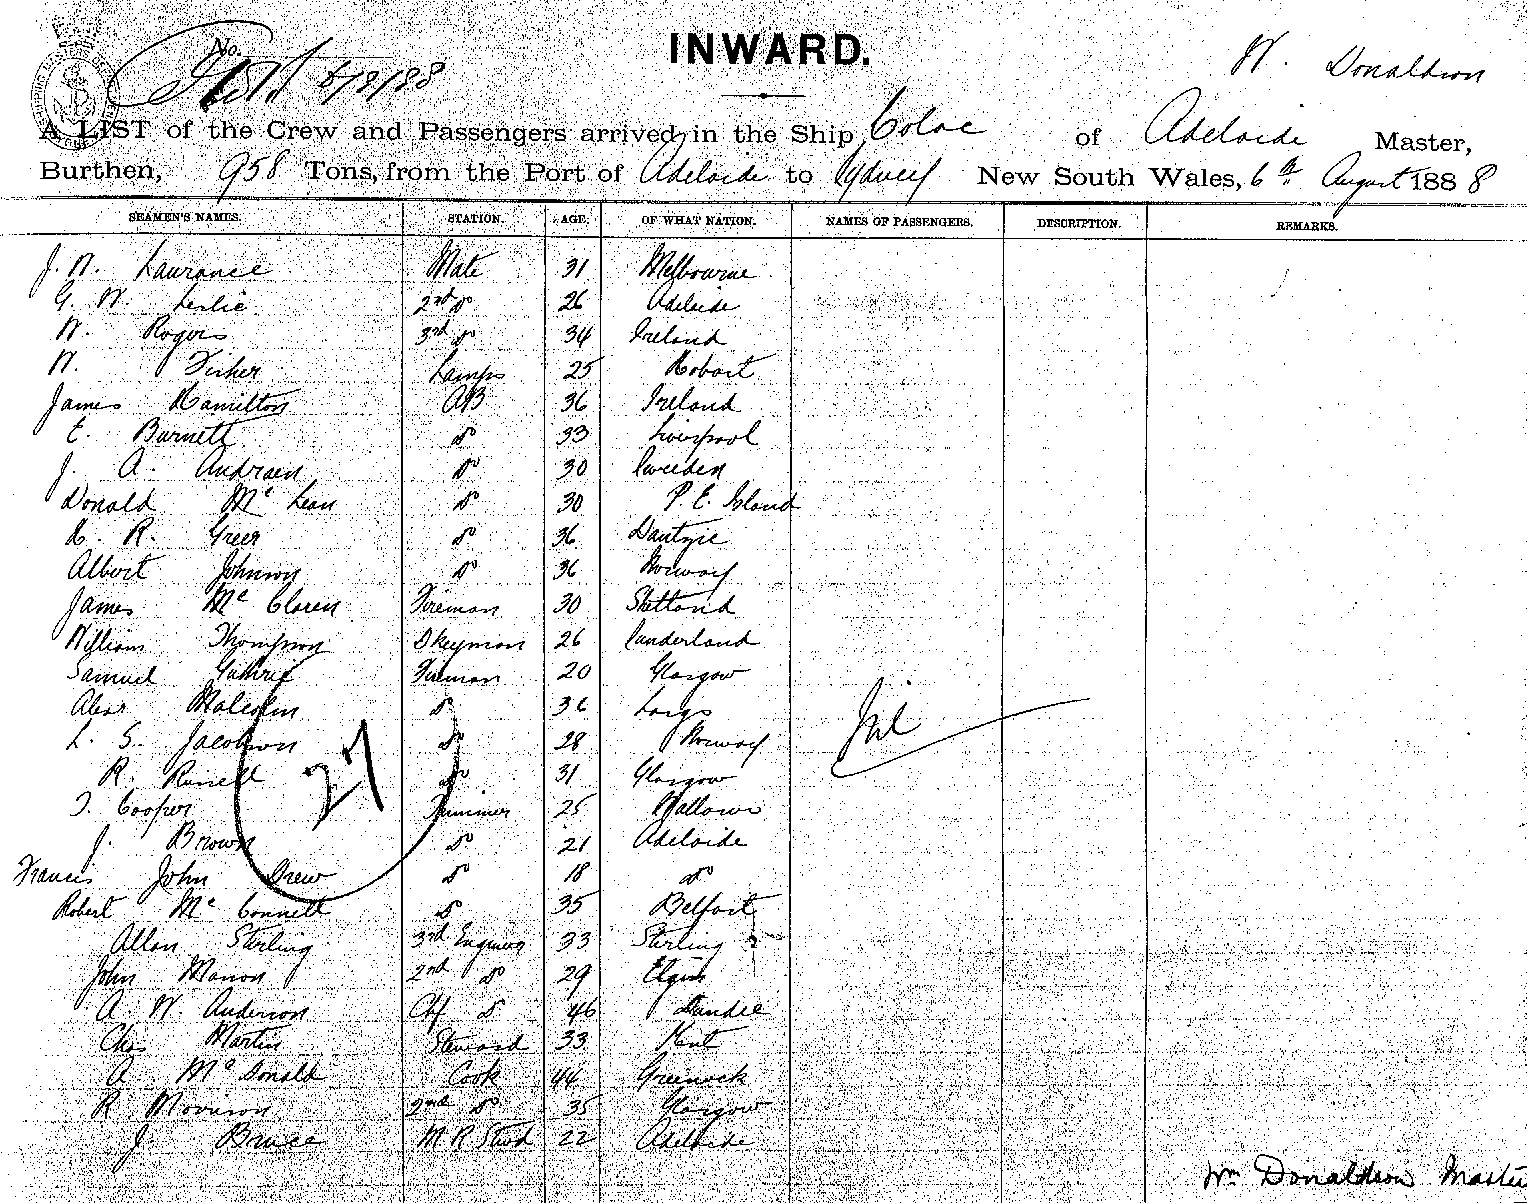 INWARD.
No.
6/8/88
W. Donaldson
A LIST of the Crew and Passengers arrived in the Ship Colac of Adelaide Master,
Burthen, 958 Tons, from the Port of Adelaide to Sydney New South Wales, 6th August 1888
SEAMEN'S NAMES. STATION. AGE. OF WHAT NATION. NAMES OF PASSENGERS. DESCRIPTION. REMARKS.
J. W. Laurance Mate 31 Melbourne
G. W. Leslie 2nd do 26 Adelaide
W. Rogers 3rd do 34 Ireland
W. Fisher Lamps 25 Hobart
James Hamilton AB 36 Ireland
E. Burnett do 33 Liverpool
J. A. do 30 Sweden
Donald Mc Lean do 30 P. E. Island
H. R. Greer do 36 Dantzic
Albert Johnson do 36 Norway
James Mc Claren Fireman 30 Shetland
William Thompson Dkeyman 26 Sunderland
Samuel Guthrie Fireman 20 Glasgow
Alexr Malcolm do 36 Largs
L. S. Jacobson do 28 Norway
Nil
R. Russell do 31 Glasgow
27
T. Cooper Trimmer 25 Wallaroo
J. Brown do 21 Adelaide
Francis John Drew do 18 do
Robert Mc Connell do 35 Belfast
Allan Sterling 3rd Engineer 33 Sterling
John Manson 2nd do 29 Elgin
A. W. Anderson Chf do 46 Dundee
Chas Martin Steward 33 Kent
A Mc Donald Cook 44 Greenock
R Morrison 2nd do 35 Glasgow
J. Bruce M R Stwd 22 Adelaide
Wm Donaldson Master